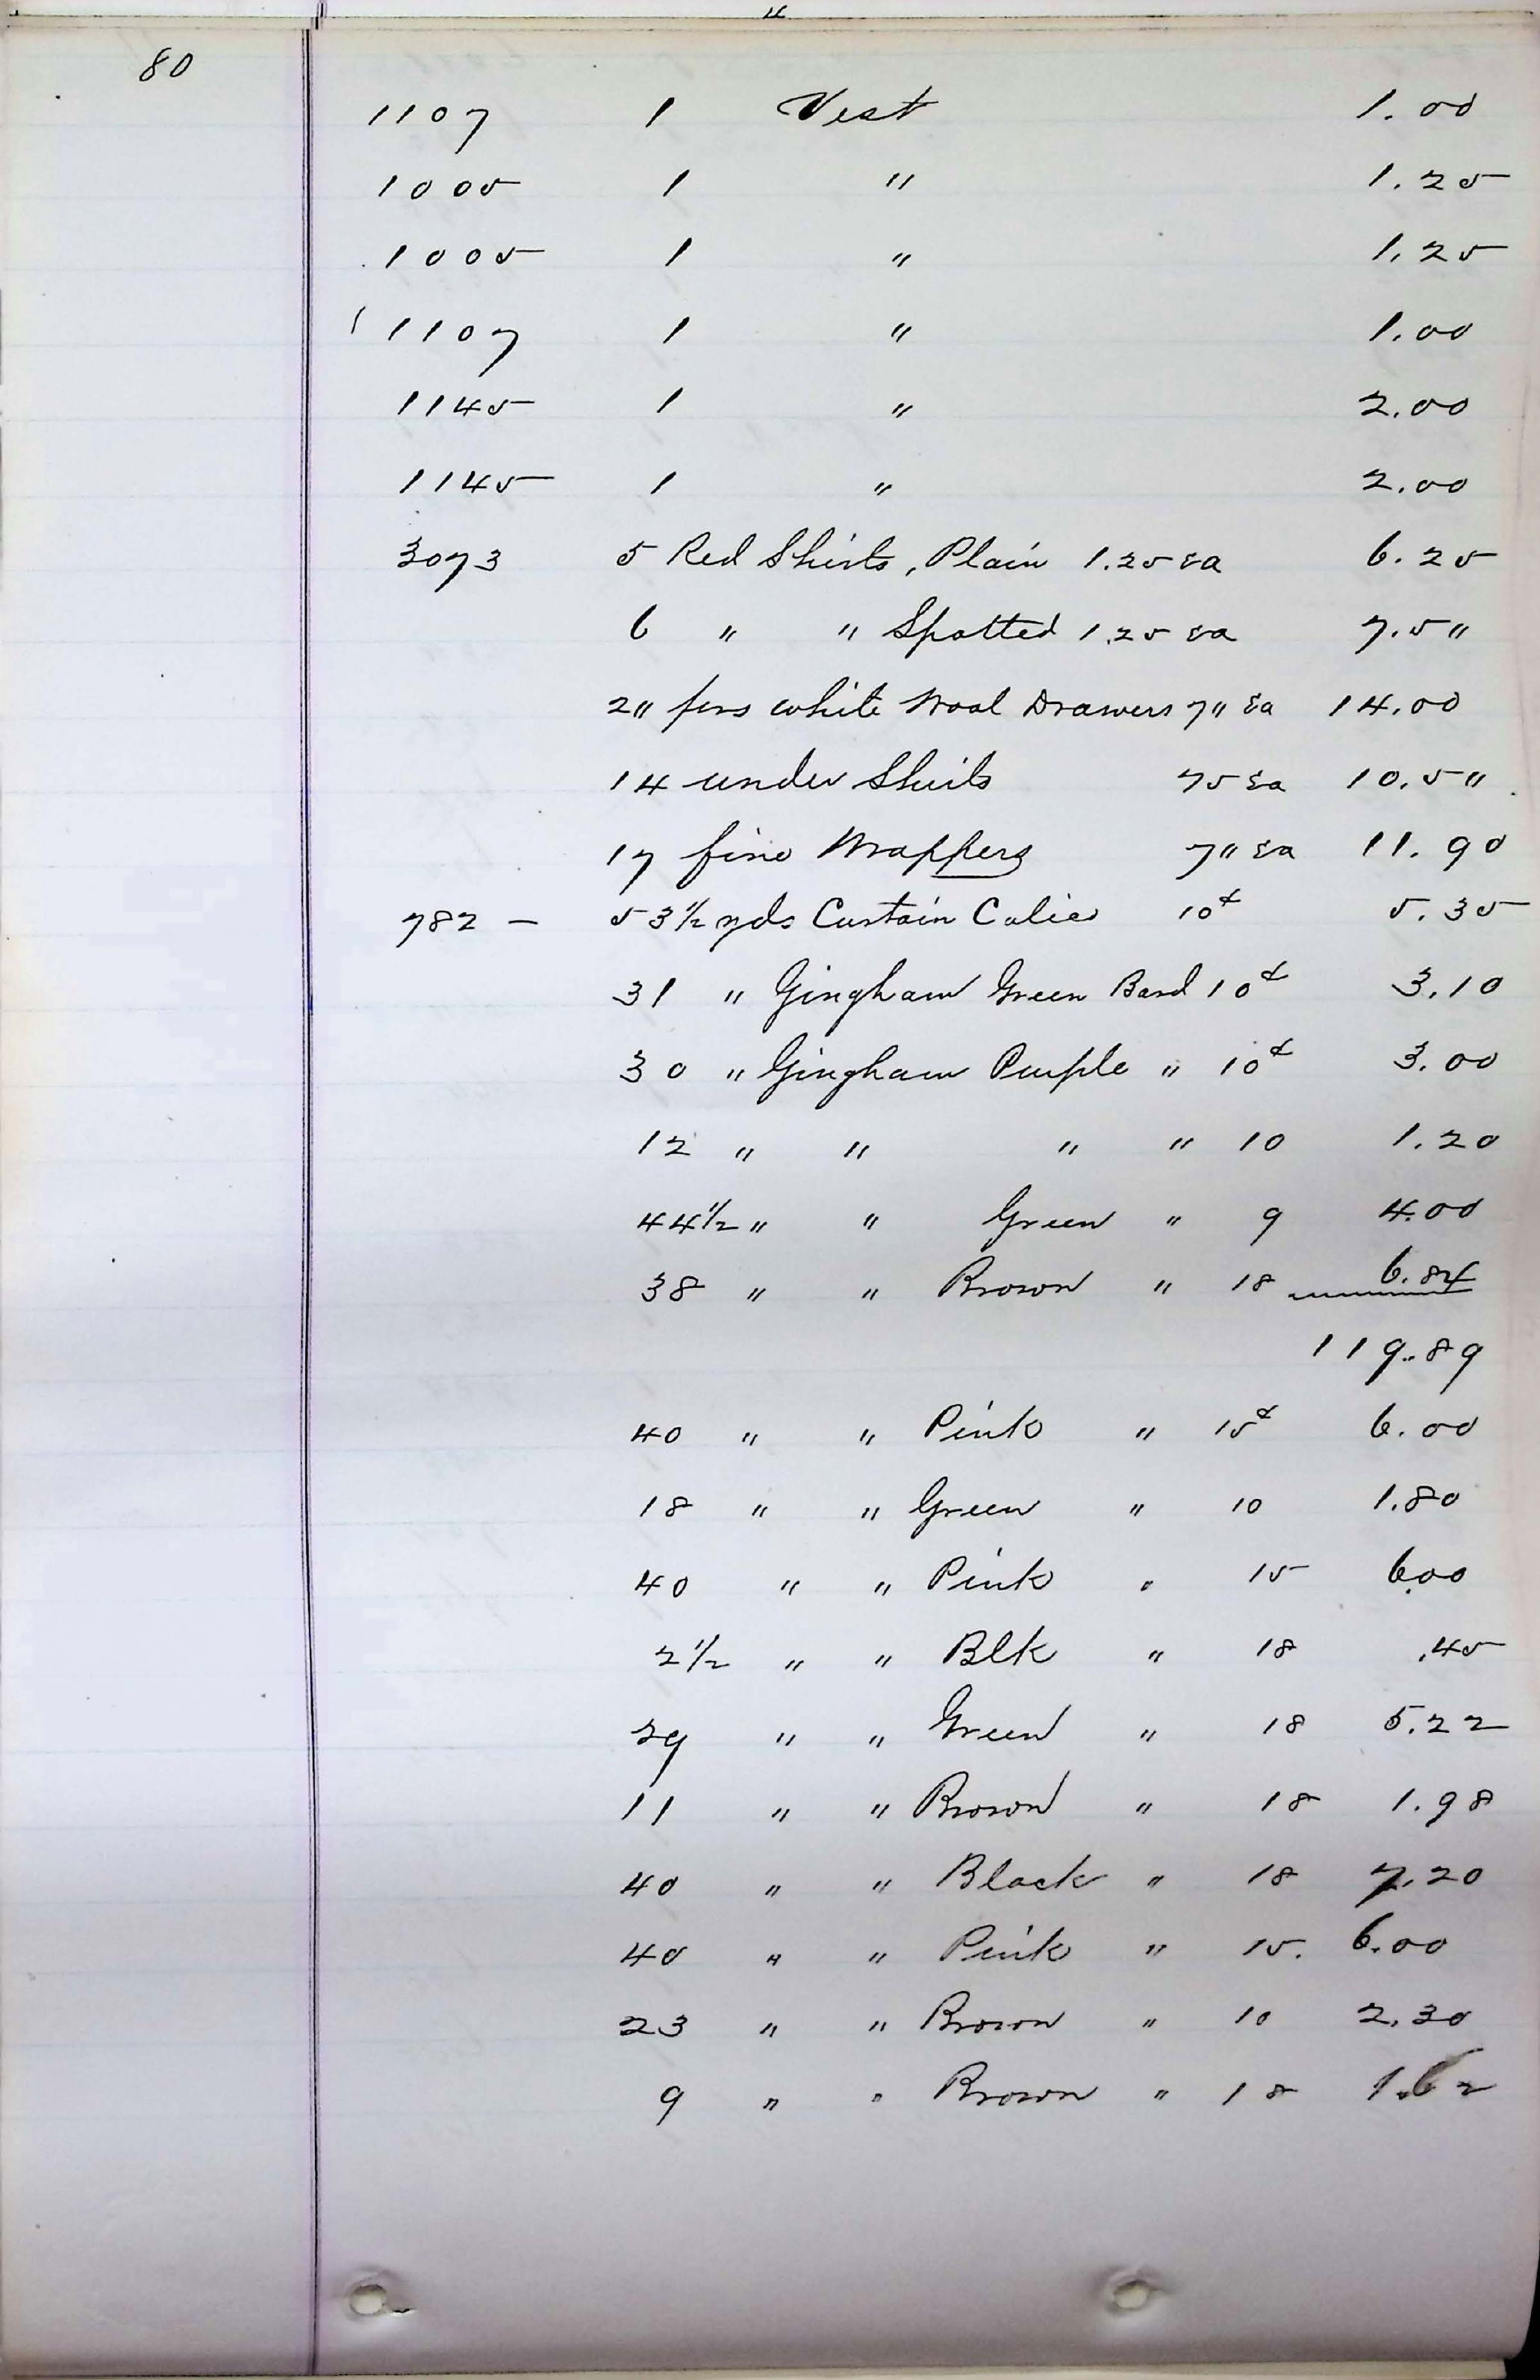 80
1107 1 Vest 1.00
1005 1 " 1.25
1005 1 " 1.25
1107 1 " 1.00
1145 1 " 2.00
1145 1 " 2.00
3073 5 Red Shirts, Plain 1.25 Ea 6.25
6 " " Spotted 1.25 Ea 7.5"
2" prs white Wool Drawers 7" Ea 14.00
14 under Shirts 75 Ea 10.5"
17 fine Wrappers 7" Ea 11.90
782 - 53 1/2 yds Curtain Calico 10¢ 5.35
31 " Gingham Green Band 10¢ 3.10
30 " Gingham Purple " 10¢ 3.00
12 " " " " 10 1.20
44 1/2 " " Green " 9 4.00
38 " " Brown " 18 6.84
119.89
40 " " Pink " 15¢ 6.00
18 " " Green " 10 1.80
40 " " Pink " 15 6.00
2 1/2 " " Blk " 18 .45
29 " " Green " 18 5.22
11 " " Brown " 18 1.98
40 " " Black " 18 7.20
40 " " Pink " 15. 6.00
23 " " Brown " 10 2.30
9 " " Brown " 18 1.62